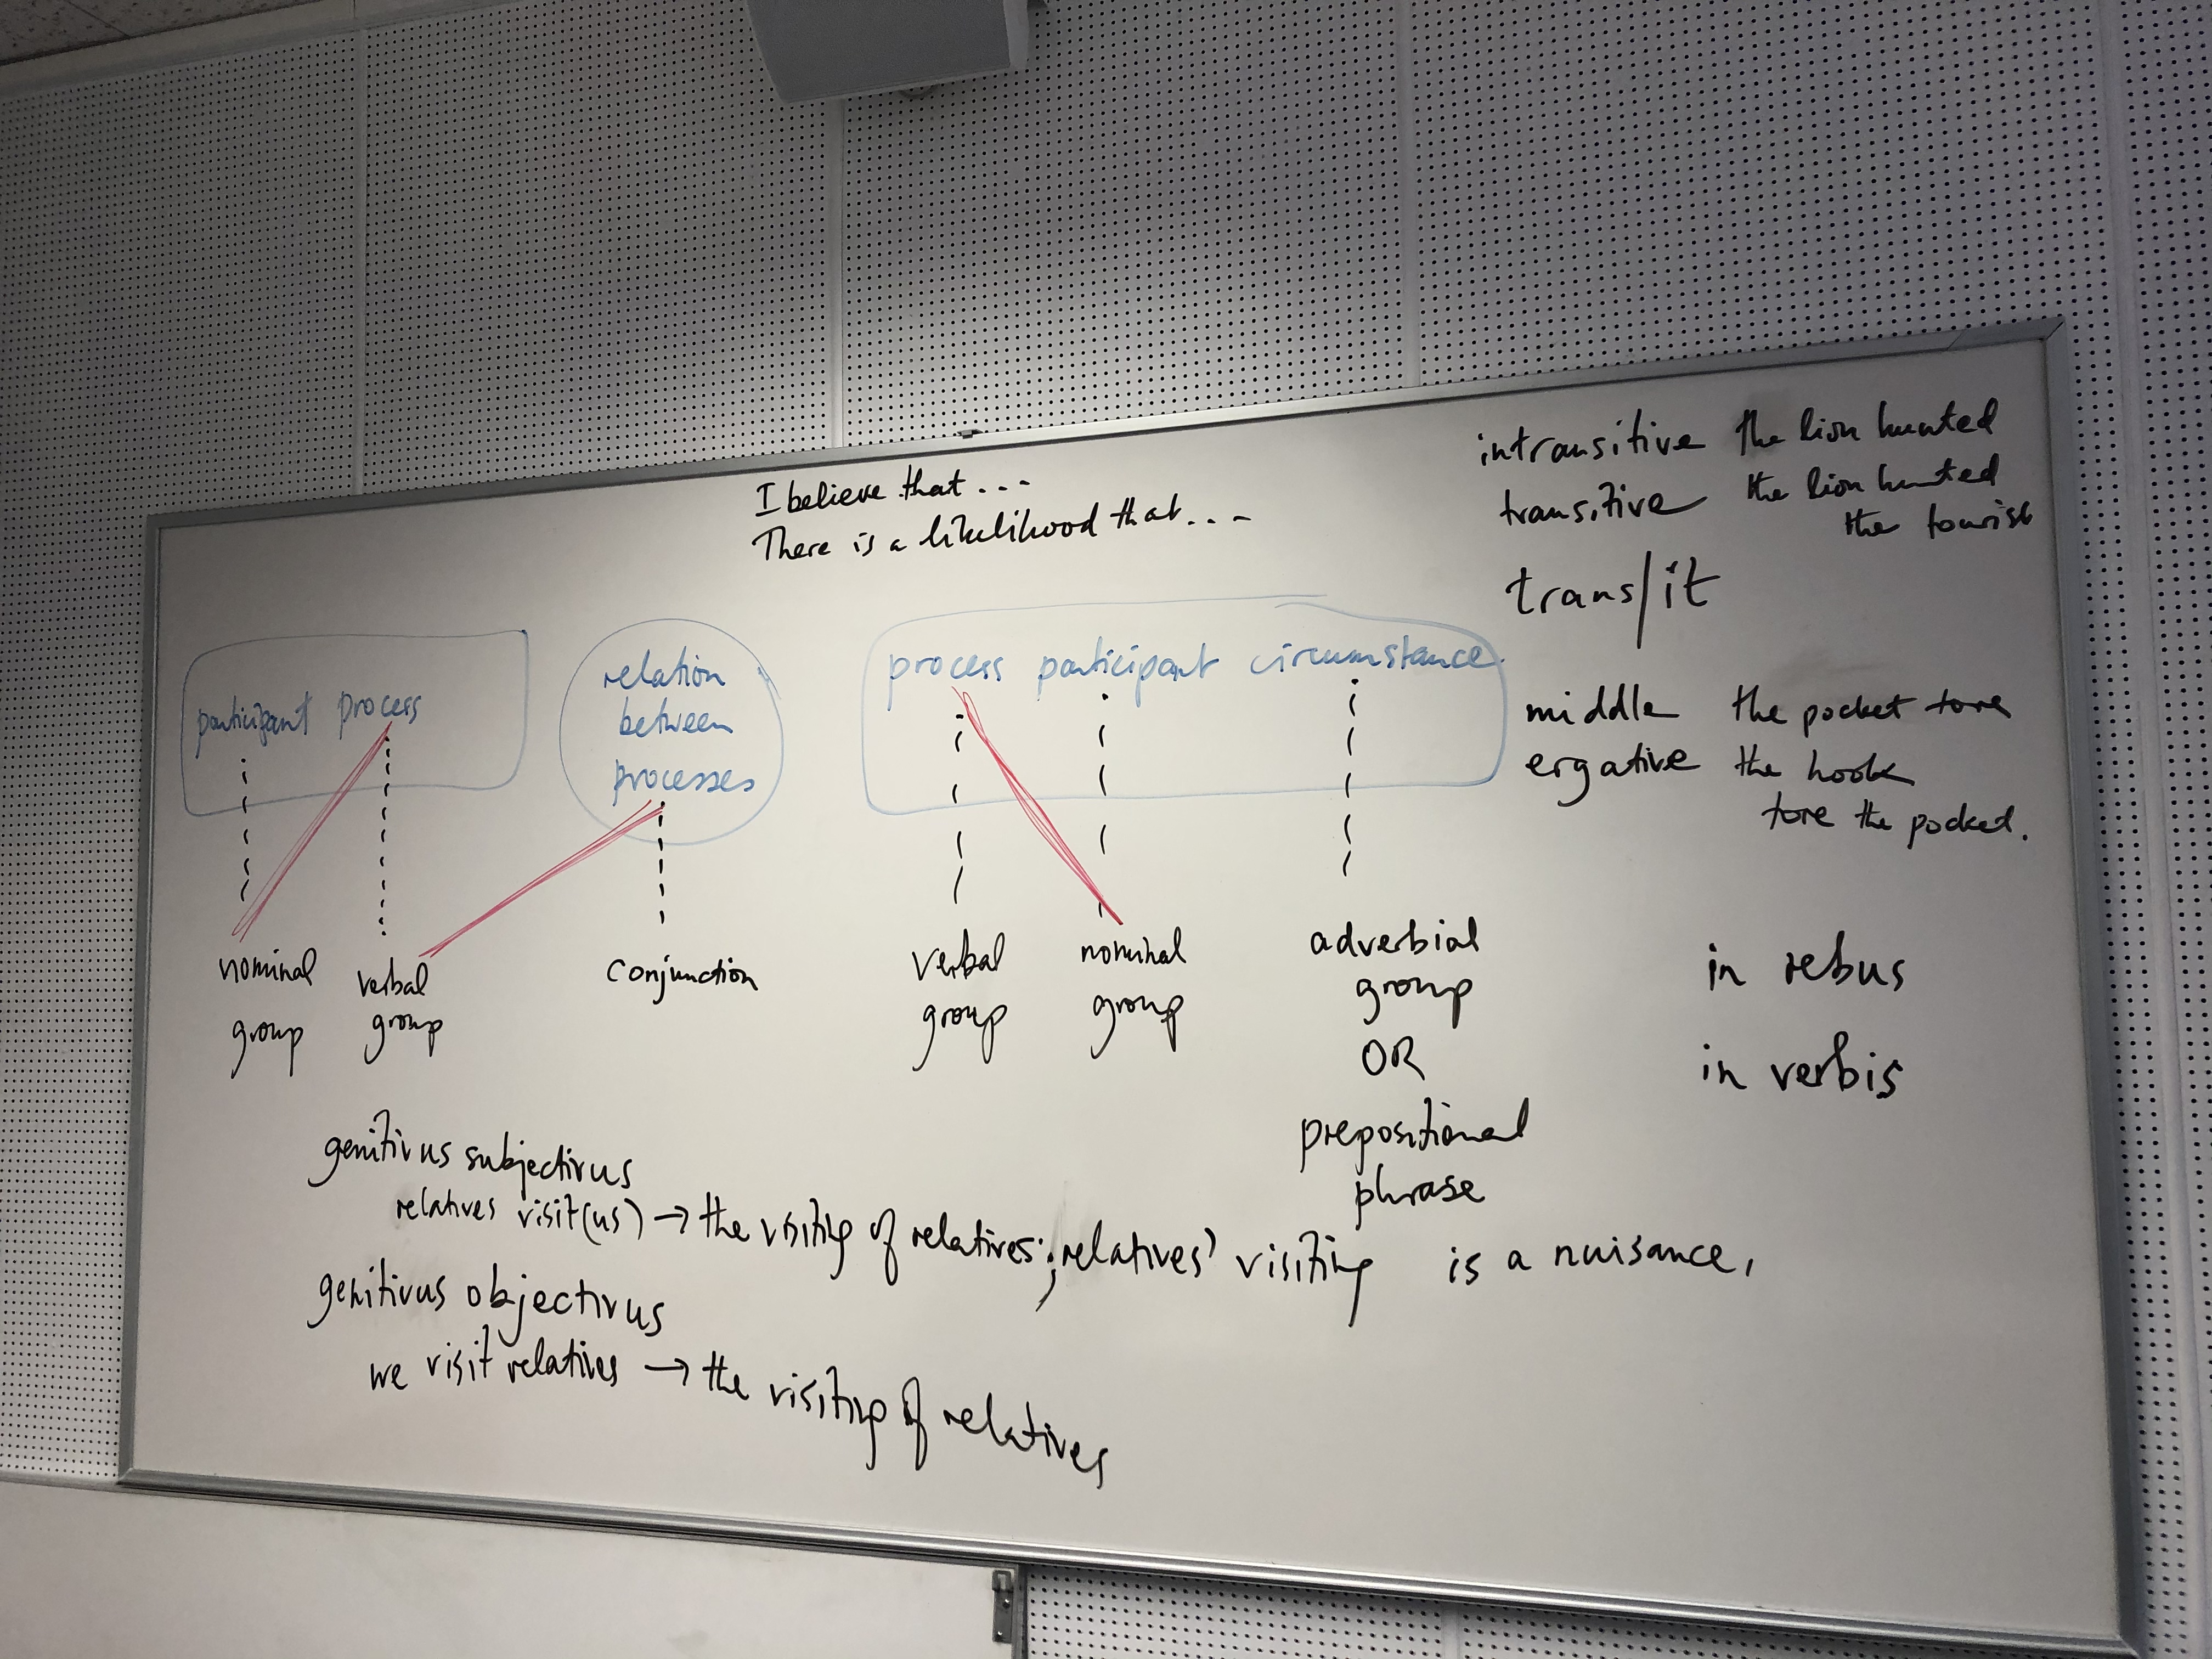 I believe that...
There is a likelihood that...
intransitive the lion hunted
transitive the lion hunted
the tourist
trans/it
middle the pocket tore
ergative the hook
tore the pocket.
participant process
relation
between
processes
process participant circumstance
nominal
group
verbal
group
conjunction
verbal
group
nominal
group
adverbial
group
OR
prepositional
phrase
in rebus
in verbis
genitivus subjectivus
relatives visit (us) → the visiting of relatives; relatives' visiting is a nuisance,
genitivus objectivus
we visit relatives → the visiting of relatives